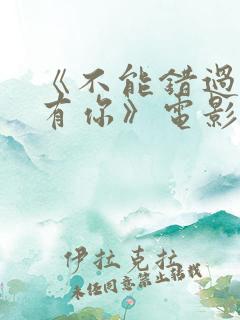 《不能错過
有你》電影
伊拉克拉
未经同意禁止转载